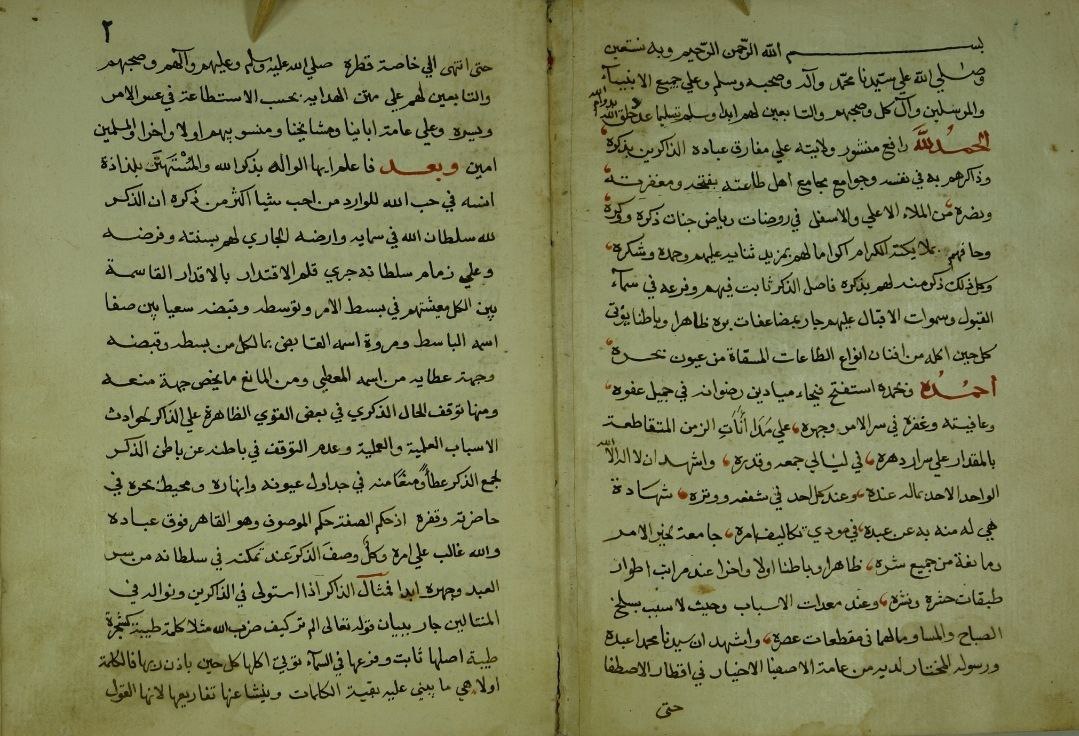 بسم الله الرحمن الرحيم وبه نستعين
وصلي الله علي سيدنا محمد وآله وصحبه وسلم وعلي جميع الانبيآء
والمرسلين وآل كل وصحبهم والتابعين لهم ابدا وسلم تسليما عدد خلق الله بدوام الله
الحمد لله رافع منشور ولايته علي مفارق عباده الذاكرين بذكره
وذكرهم به في نفسه وجوامع مجامع اهل طاعته بفتحه ومغفرته
ونضره من الملاء الاعلي والاسفل في روضات رياض جنات ذكره
وحافهم بملايكته الكرام اكراما لهم بمزيد ثنايه عليهم وحمده وشكره
وكل ذلك ذكر منه لهم بذكره فاصل الذكر ثابت فيهم وفرعه في سمآء
القبول وسموات الاقبال عليهم جار بمضاعفات بره ظاهرا وباطنا يؤتي
كل حين اكله من افنان انواع الطاعات المسقاة من عيون بحره
احمده وبحمده استفتح ميادين رضوانه في جميل عفوه
وعافيته وغفره في سر الامر وجهره علي مدا أنآت الزمن المتقاطعة
بالمقدار علي مرار دهره في ليالي جمعه وقدره واشهد ان لا اله الا الله
الواحد الاحد بماله عنده وعند كل احد في شفعه ووتره شهادة
هي له منه به عن عبده في مودي تكاليف امره جامعة لخير الامر
ومانعة من جميع شره ظاهرا وباطنا اولا واخرا عند مراتب اطوار
طبقات حشره ونشره وعند معدات الاسباب وحيث لا سبب بسلخ
الصباح والمسا وما لهما في مقطعات عصره واشهد ان سيدنا محمدا عبده
ورسوله المختار لديه من عامة الاصفيا الاخيار في اقطار الاصطفا
حتى
٢
حتى انتهى الي خاصة قطره صلي الله عليه وسلم وعليهم وآلهم وصحبهم
والتابعين لهم علي متن الهدايه بحسب الاستطاعة في عسر الامر
ويسره وعلي عامة اباينا ومشايخنا ومنسوبيهم اولا واخرا والمسلمين
امين وبعد فاعلم ايها الواله بذكر الله والمستهتر بلذاذة
انسه في حب الله للوارد من احب شيا اكثر من ذكره ان الذكر
لله سلطان الله في سمايه وارضه الجاري لهم بسنته وفرضه
وعلي زمام سلطانه جري قلم الاقتدار بالاقدار القاسمة
بين الكل معيشتهم في بسط الامر وتوسطه وقبضه سعيا بين صفا
اسمه الباسط ومروة اسمه القابض بما لكل من بسطه وقبضه
وجهة عطايه من اسمه المعطي ومن المانع ما يخص جهة منعه
ومنها توقف الحال الذكري في بعض القوي الظاهرة علي الذاكر لحوادث
الاسباب العلمية والعملية وعدم التوقف في باطنه عن باطن الذكر
لجمع الذكر عطاً ومنعًا منه في جداول عيونه وانهاره ومحيط بحره في
حاضرته وقفره اذ حكم الصفة حكم الموصوف وهو القاهر فوق عباده
والله غالب علي امره وكل وصف الذكر عند تمكنه في سلطانه من سر
العبد وجهره ابدا فمثال الذاكر اذا استولي في الذاكرين وتواله في
المتتالين جار ببيان قوله تعالى الم تر كيف ضرب الله مثلا كلمة طيبة كشجرة
طيبة اصلها ثابت وفرعها في السمآء تؤتي اكلها كل حين باذن ربها فالكلمة
اولا هي ما يبني عليه بقية الكلمات وينشا عنها تفاريعها لانها القول